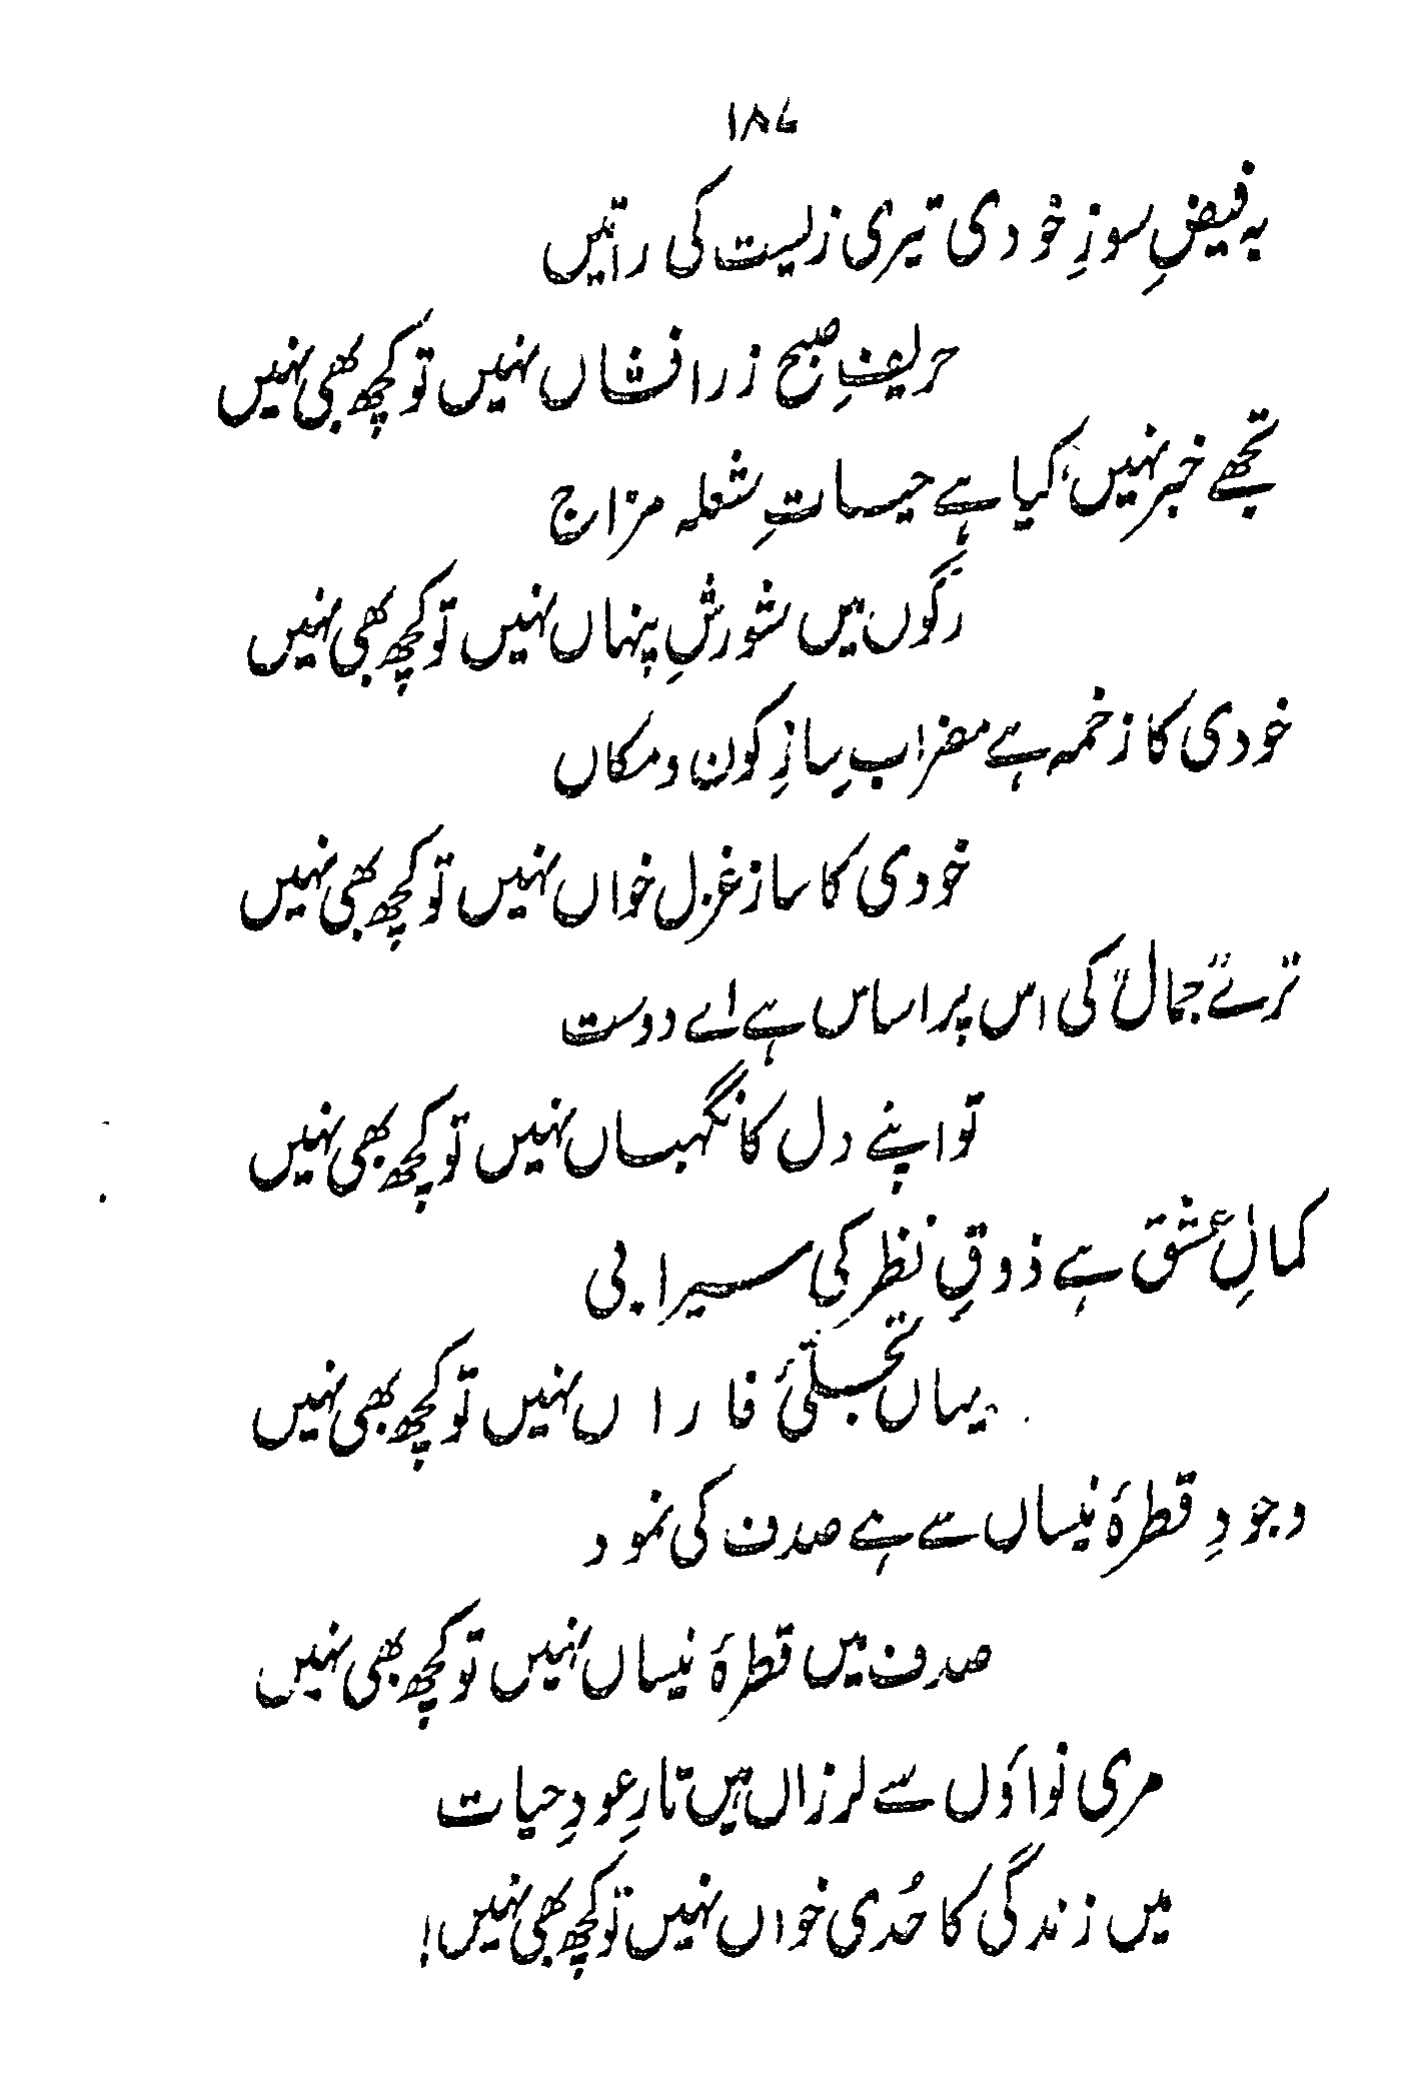 ۱۸۷
بہ فیضِ سوزِ خودی تیری زیست کی راتیں
حریفِ صبح زرافشاں نہیں تو کچھ بھی نہیں
تجھے خبر نہیں، کیا ہے حیاتِ شعلہ مزاج
رگوں میں شورشِ پنہاں نہیں تو کچھ بھی نہیں
خودی کا زخمہ ہے مضرابِ سازِ کون و مکاں
خودی کا ساز غزل خواں نہیں تو کچھ بھی نہیں
ترے "جمال" کی اس پر اساس ہے اے دوست
تو اپنے دل کا نگہباں نہیں تو کچھ بھی نہیں
کمالِ عشق ہے ذوقِ نظر کی سیرابی
یہاں تجلیٔ فاراں نہیں تو کچھ بھی نہیں
وجودِ قطرۂ نیساں سے ہے صدف کی نمود
صدف میں قطرۂ نیساں نہیں تو کچھ بھی نہیں
مری نواؤں سے لرزاں ہیں تارِ عودِ حیات
میں زندگی کا حُدی خواں نہیں تو کچھ بھی نہیں!